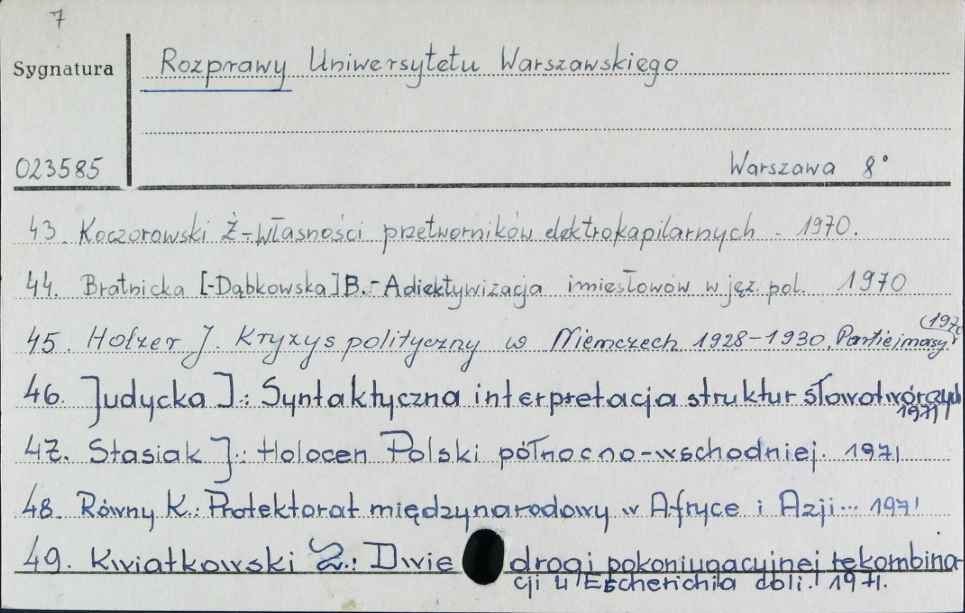 7
Sygnatura
Rozprawy Uniwersytetu Warszawskiego
023585
Warszawa 8°
43. Koczorowski Ż - Własności przetworników elektrokapilarnych - 1970.
44. Bratnicka [-Dąbkowska] B. - Adiektywizacja imiesłowów w jęz. pol. 1970
45. Holzer J. Kryzys polityczny w Niemczech 1928-1930. Partie i masy. (1970
46. Judycka J.: Syntaktyczna interpretacja struktur słowotwórczych 1971
47. Stasiak J.: Holocen Polski północno-wschodniej. 1971
48. Równy K.: Protektorat międzynarodowy w Afryce i Azji... 1971
49. Kwiatkowski Z.: Dwie drogi pokoniugacyjnej rekombina-
cji u Escherichia coli. 1971.